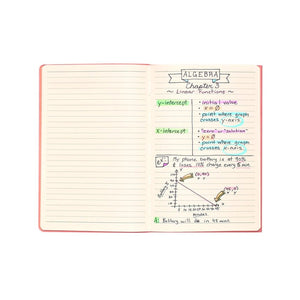 ALGEBRA
Chapter 3
~ Linear Functions ~
y-intercept:
• initial value
• x = 0
• point where graph
crosses y-axis
x-intercept:
• "zero" or "solution"
• y = 0
• point where graph
crosses x-axis
My phone battery is at 90%
& loses 10% charge every 5 min.
Minutes
A: Battery will die in 45 mins